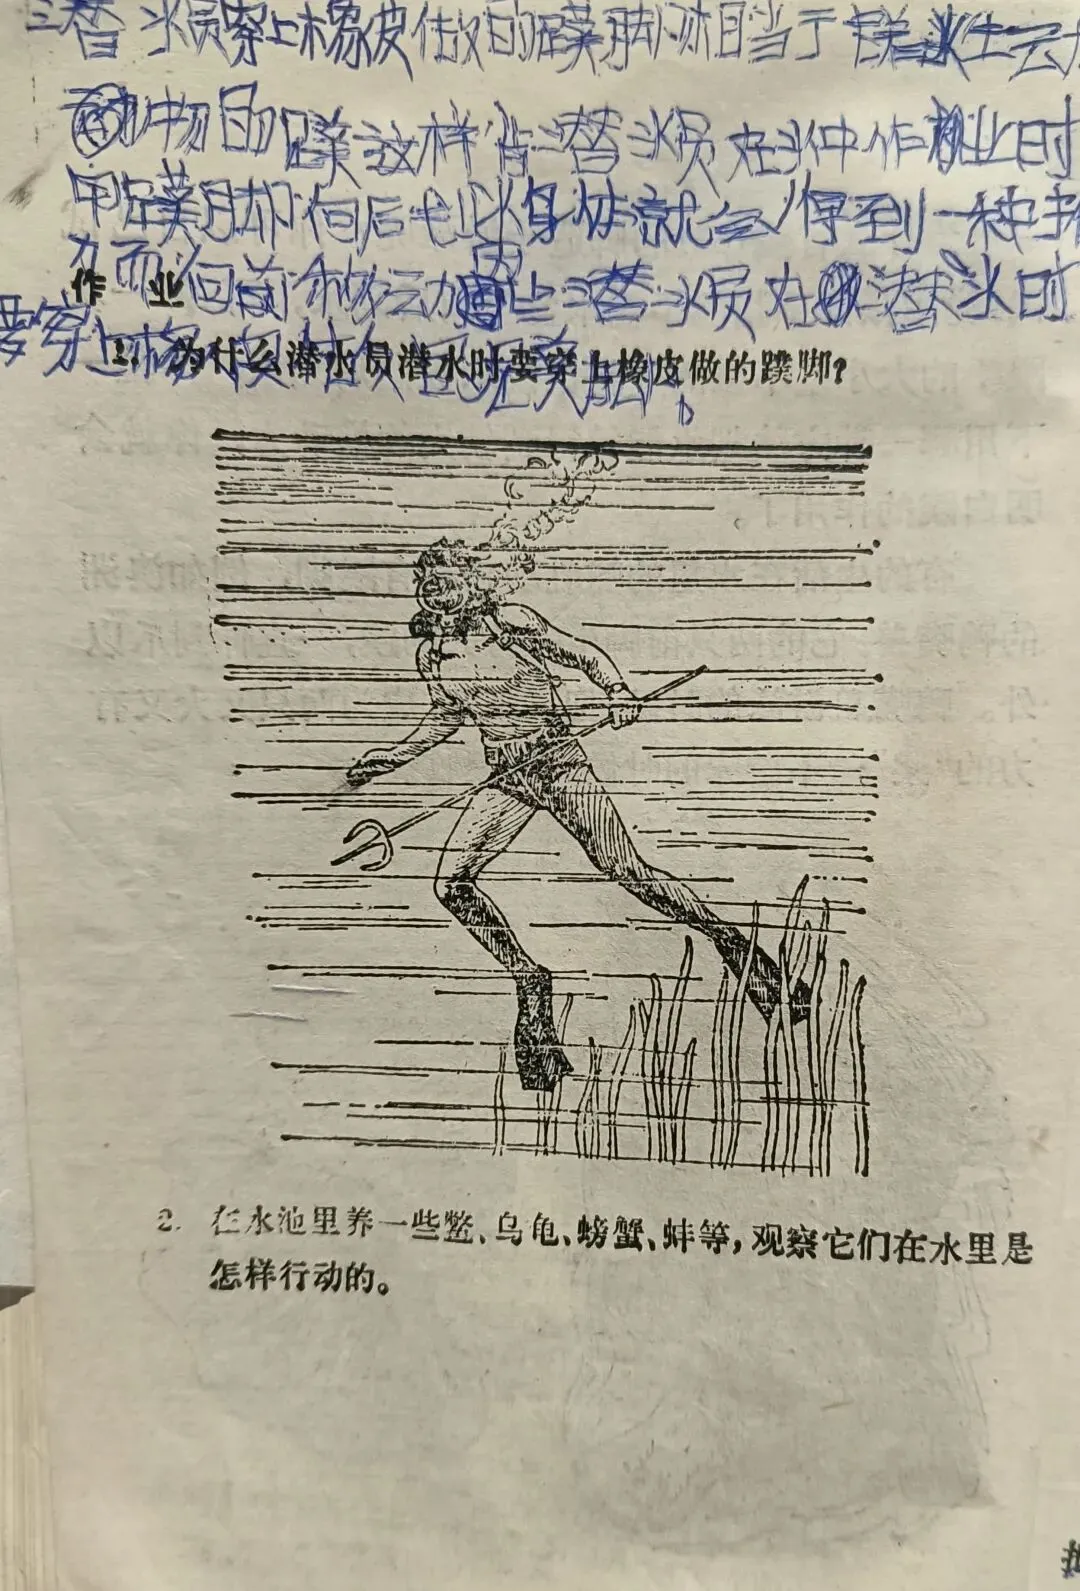 潜水员穿上橡皮做的蹼脚㳈相当于
动物的蹼这样当潜水员在水中作业时
用蹼脚向后划水身体就会得到一种推
力而向前移动因此潜水员在潜水时
要穿上橡皮做的蹼脚
作 业
1. 为什么潜水员潜水时要穿上橡皮做的蹼脚?
2. 在水池里养一些鳖、乌龟、螃蟹、蚌等,观察它们在水里是
怎样行动的。